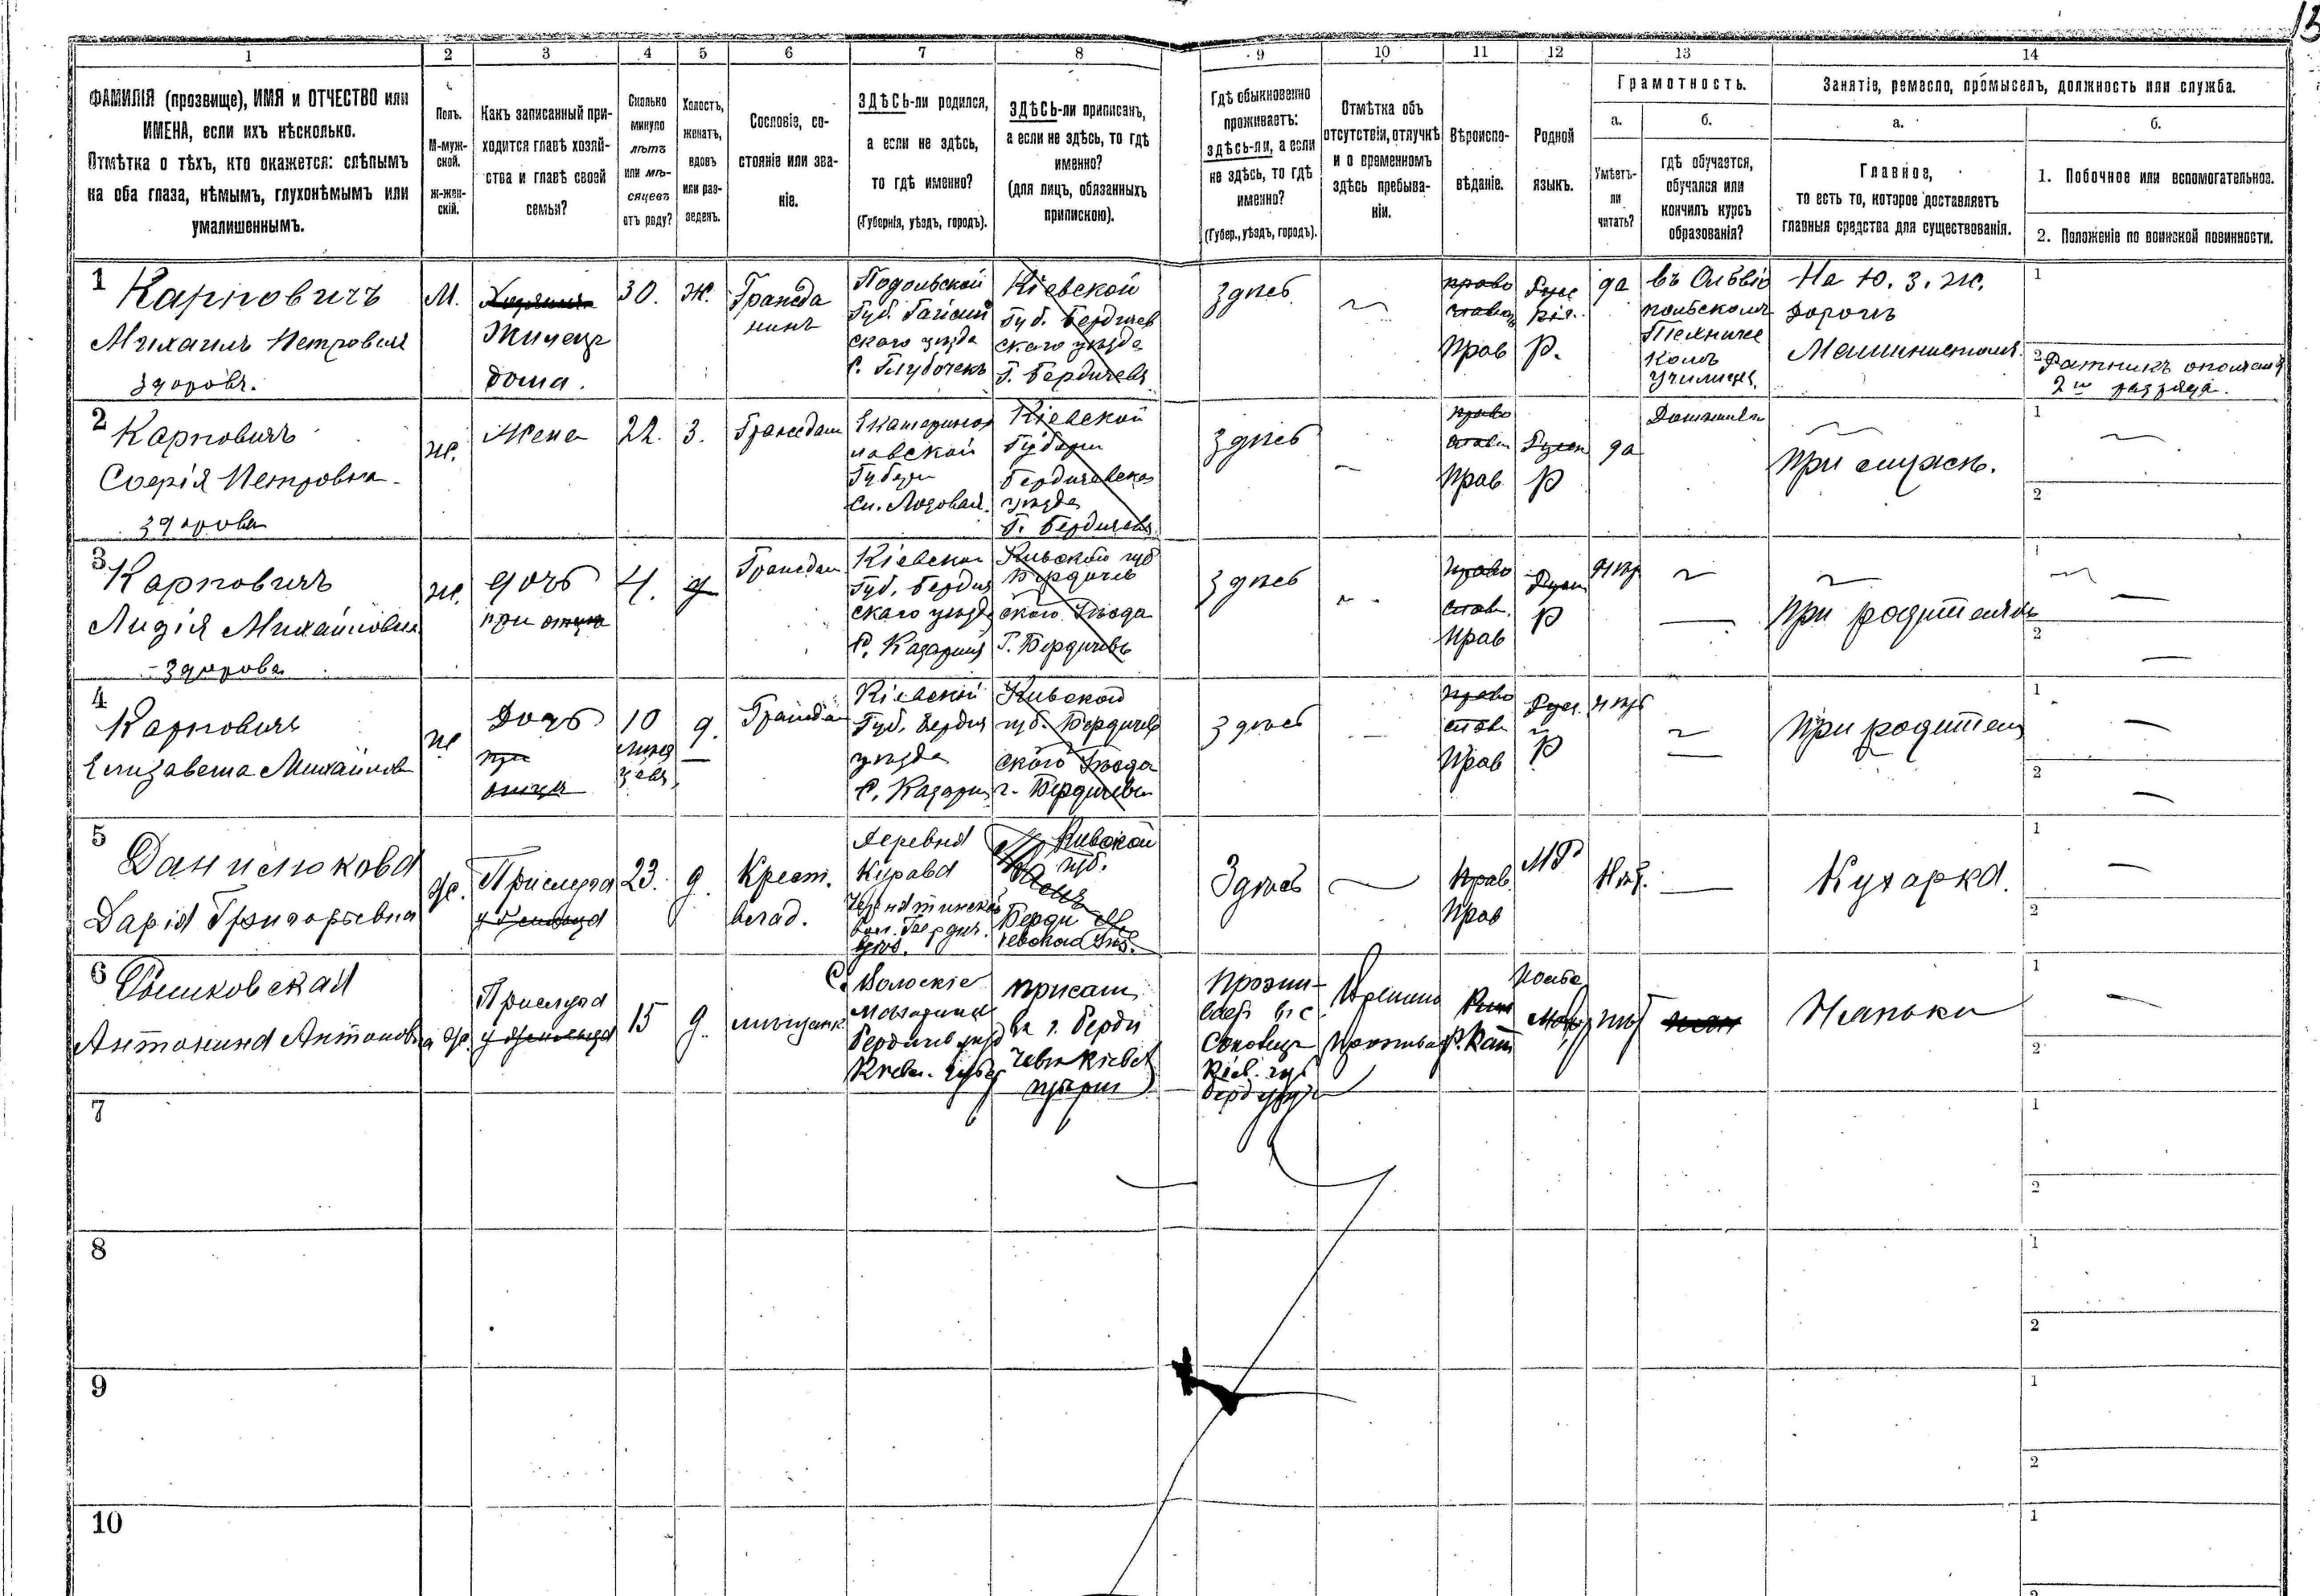 13
1 2 3 4 5 6 7 8 9 10 11 12 13 14
ФАМИЛІЯ (прозвище), ИМЯ и ОТЧЕСТВО или
ИМЕНА, если ихъ нѣсколько.
Отмѣтка о тѣхъ, кто окажется: слѣпымъ
на оба глаза, нѣмымъ, глухонѣмымъ или
умалишеннымъ.
Полъ.
М-муж-
ской.
Ж-жен-
скій.
Какъ записанный при-
ходится главѣ хозяй-
ства и главѣ своей
семьи?
Сколько
минуло
лѣтъ
или мѣ-
сяцевъ
отъ роду?
Холостъ,
женатъ,
вдовъ
или раз-
веденъ.
Сословіе, со-
стояніе или зва-
ніе.
ЗДѢСЬ-ли родился,
а если не здѣсь,
то гдѣ именно?
(Губернія, уѣздъ, городъ).
ЗДѢСЬ-ли приписанъ,
а если не здѣсь, то гдѣ
именно?
(для лицъ, обязанныхъ
припискою).
Гдѣ обыкновенно
проживаетъ:
здѣсь-ли, а если
не здѣсь, то гдѣ
именно?
(Губер., уѣздъ, городъ).
Отмѣтка объ
отсутствіи, отлучкѣ
и о временномъ
здѣсь пребыва-
ніи.
Вѣроиспо-
вѣданіе.
Родной
языкъ.
Грамотность.
а.
Умѣетъ-
ли
читать?
б.
гдѣ обучается,
обучался или
кончилъ курсъ
образованія?
Занятіе, ремесло, промыселъ, должность или служба.
а.
Главное,
то есть то, которое доставляетъ
главныя средства для существованія.
б.
1. Побочное или вспомогательное.
2. Положеніе по воинской повинности.
1
Карповичъ
Михаилъ Петровичъ
здоровъ.
М.
Жилецъ
дома.
30.
Ж.
Гражда
нинъ
Подольской
Губ. Гайсин
скаго уѣзда
С. Глубочекъ
Кіевской
Губ. Бердичев
скаго уѣзда
Г. Бердичевъ
здѣсь
право
славн
Прав
Рус
кій.
Р.
да
въ Ольвіо
польскомъ
Техниче
комъ
училищѣ
На Ю. З. Ж.
дорогѣ
Машинистомъ.
1
2
Ратникъ ополченія
2го разряда.
2
Карповичъ
Софія Петровна
здорова
Ж.
Жена
22.
З.
Граждан
Екатерино
славской
Губерн
Ст. Лозовая.
Кіевской
Губерн
Бердичевско
уѣзда
Г. Бердичевъ
здѣсь
право
славн
Прав
Р
да
Домашнее
При мужѣ.
1
2
3
Карповичъ
Лидія Михайловна
здорова
Ж.
дочь
при отцѣ
4.
д
Граждан
Кіевской
Губ. Бердич
скаго уѣзда
С. Казатинъ
Кіевской губ
Бердичев
скаго Уѣзда
Г. Бердичевъ
здѣсь
право
слав.
Прав
Р
нѣт
При родителях
1
2
4
Карповичъ
Елизавета Михайлов
Ж
Дочь
при
отцѣ
10
мѣся
цевъ
д.
Граждан
Кіевской
Губ. Бердич
уѣзда
С. Казатин
Кіевской
губ. Бердичев
скаго Уѣзда
г. Бердичевъ
здѣсь
право
слав
Прав
Русс.
Р
нѣт
При родител
1
2
5
Данилюкова
Дарія Григорьевна
Ж.
Прислуга
23.
д.
Крест.
влад.
Деревня
Журава
Кіевской
губ.
Берди
чевскаго Уѣз.
Здѣсь
Прав.
Прав
МР
Нѣт.
Кухарка.
1
2
6
Антонина Антоновна
Ж.
Прислуга
15
д.
мѣщанк
С. Волоскіе
Бердичев уѣзд
Кіев. Губер
приписан
въ г. Берди
чевѣ Кіевск
губерніи
Прожи-
вает въ с
Кіев. губ
Временно
Р. Кат
Польс
нѣт
Нянька
1
2
7
1
2
8
1
2
9
1
2
10
1
2